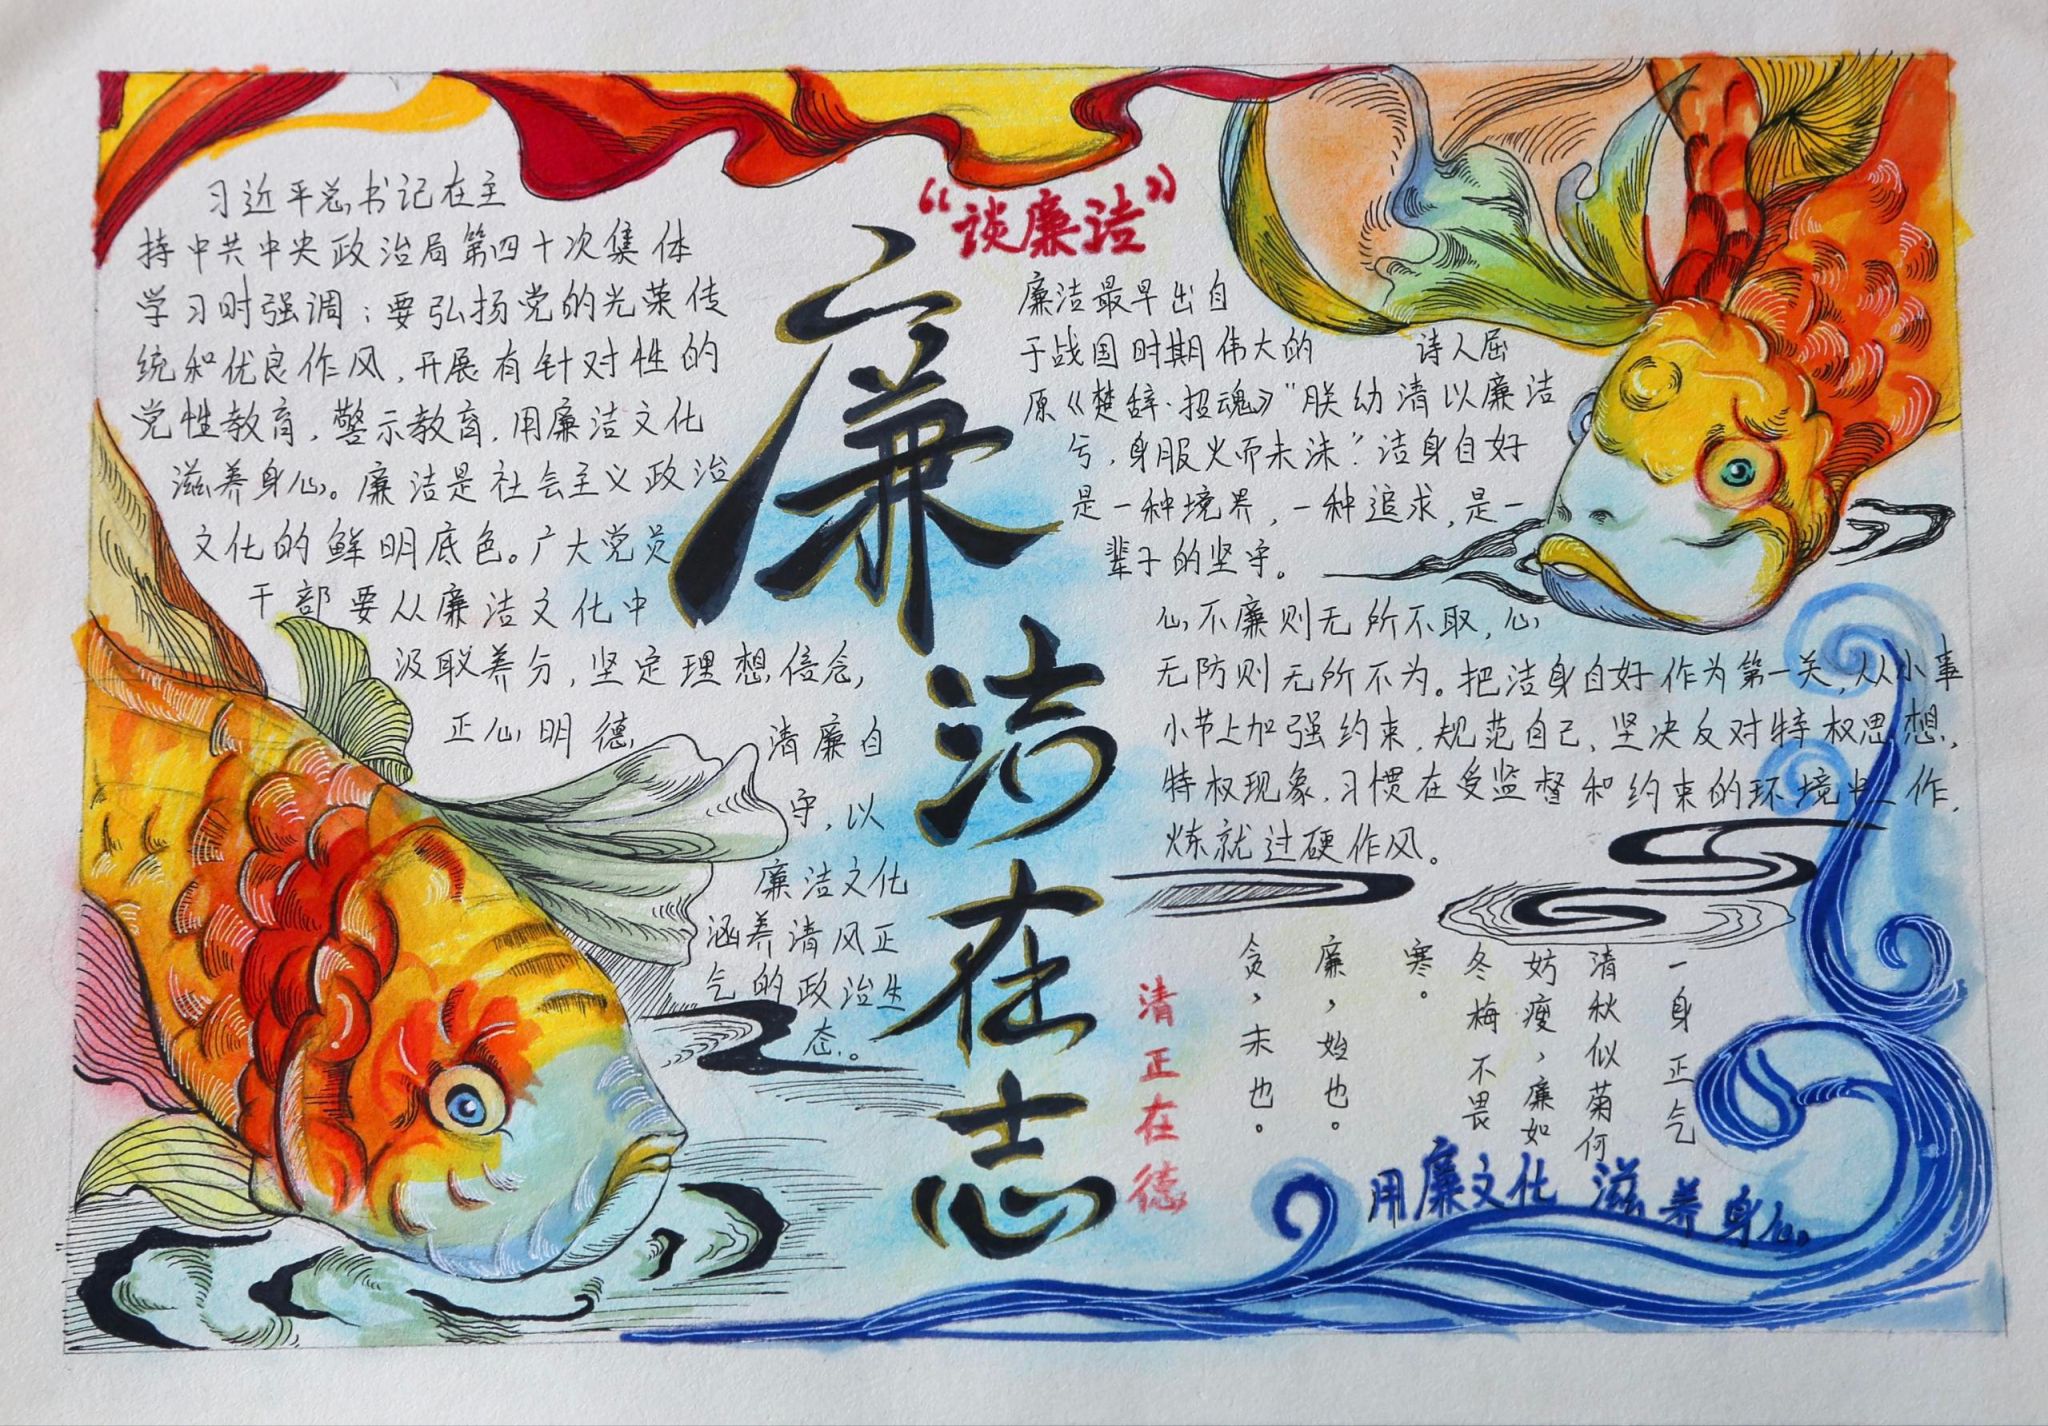 习近平总书记在主
持中共中央政治局第四十次集体
学习时强调：要弘扬党的光荣传
统和优良作风，开展有针对性的
党性教育，警示教育，用廉洁文化
滋养身心。廉洁是社会主义政治
文化的鲜明底色。广大党员
干部要从廉洁文化中
汲取养分，坚定理想信念，
正心明德
清廉自
守，以
廉洁文化
涵养清风正
气的政治生
态。
廉洁在志
清正在德
“谈廉洁”
廉洁最早出自
于战国时期伟大的 诗人屈
原《楚辞·招魂》“朕幼清以廉洁
兮，身服义而未沫”洁身自好
是一种境界，一种追求，是一
辈子的坚守。
心不廉则无所不取，心
无防则无所不为。把洁身自好作为第一关，从小事
小节上加强约束，规范自己、坚决反对特权思想，
特权现象，习惯在受监督和约束的环境中工作，
炼就过硬作风。
一身正气
清秋似菊何
妨瘦，廉如
冬梅不畏
寒。
廉，始也。
贪，末也。
用廉文化 滋养身心。